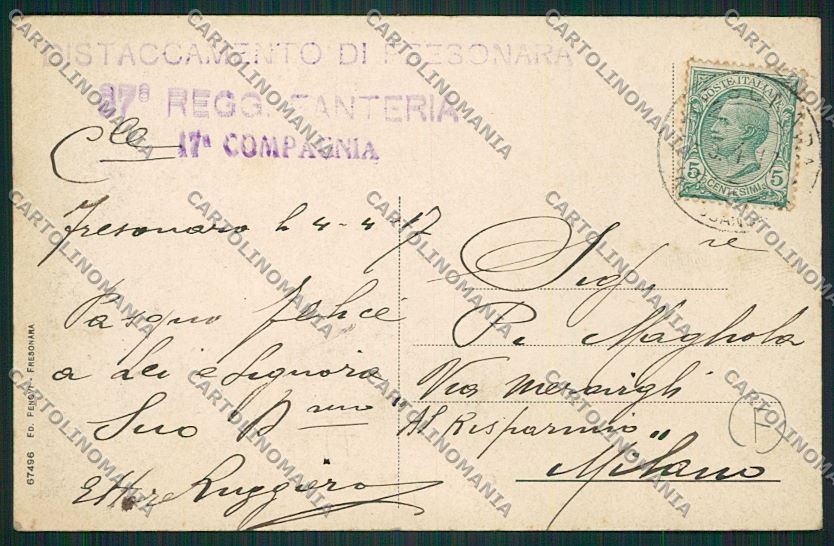 DISTACCAMENTO DI FRESONARA
37° REGG. FANTERIA
17ª COMPAGNIA
POSTE ITALIANE
5 CENTESIMI 5
Fresonara li 4-4-17
Pasqua felice
a Lei e Signora
Suo
Ettore Ruggiero
Sigre
P. Magnola
Via Meravigli
"Al Risparmio"
Milano
67496 ED. PENOVI - FRESONARA
CARTOLINOMANIA